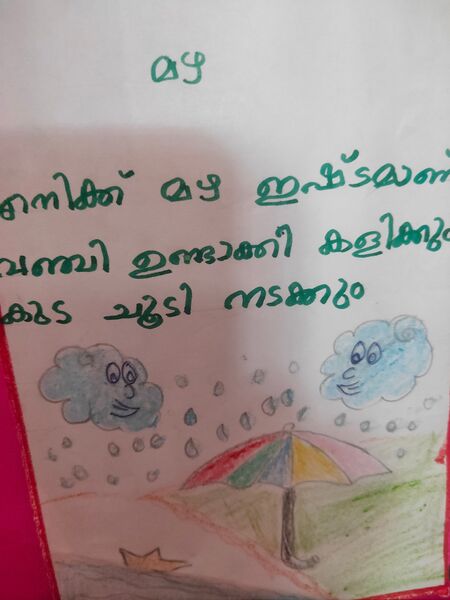 മഴ
എനിക്ക് മഴ ഇഷ്ടമാണ്
വഞ്ചി ഉണ്ടാക്കി കളിക്കും
കുട ചൂടി നടക്കും